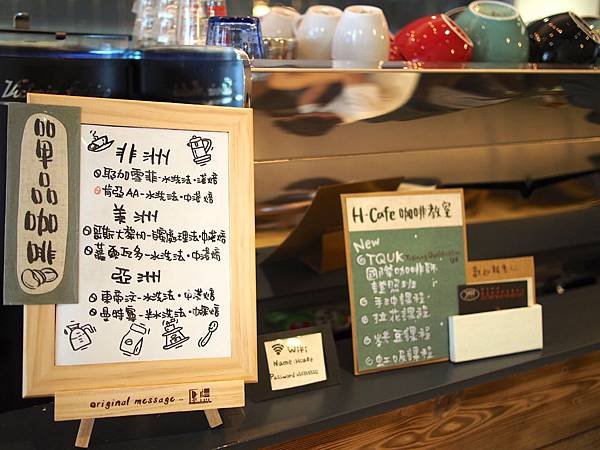 單品咖啡
非洲
耶加雪菲-水洗法·淺焙
肯亞AA-水洗法·中淺焙
美洲
哥斯大黎加-蜜處理法·中淺焙
薩爾瓦多-水洗法·中淺焙
亞洲
東帝汶-水洗法·中淺焙
曼特寧-半水洗法·中深焙
original message
H-Cafe 咖啡教室
New
TQUK
國際咖啡師
證照班
手沖課程
拉花課程
烘豆課程
虹吸課程
Wifi
Name: Hcafe
Password